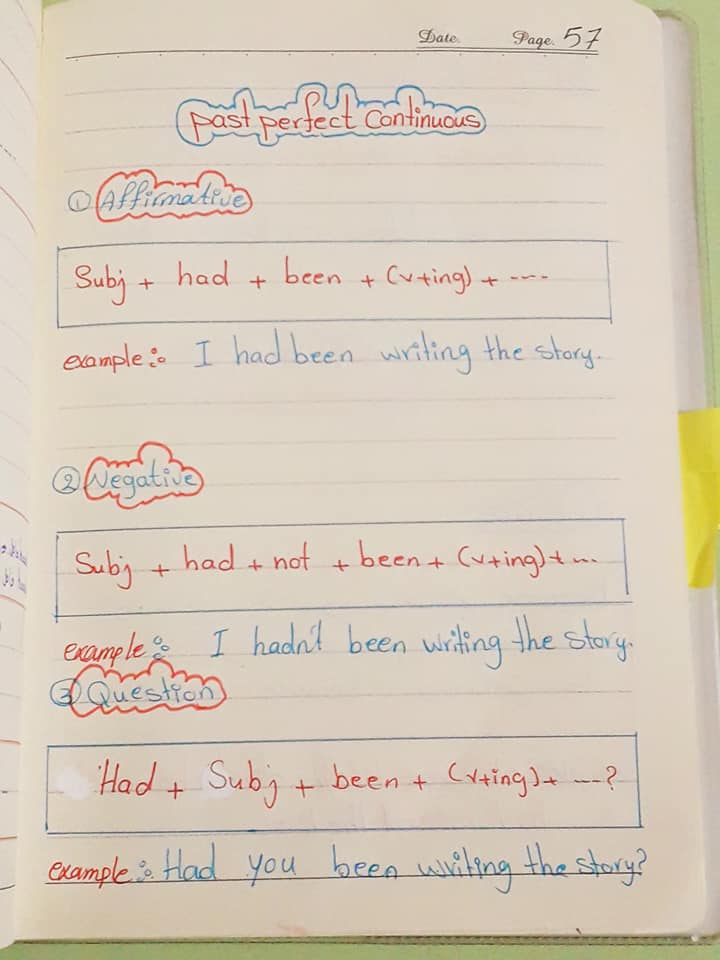 Date. Page. 57
past perfect Continuous
① Affirmative
Subj + had + been + (v+ing) + ----
example:. I had been writing the story.
② Negative
Subj + had + not + been + (v+ing) + ...
example:. I hadn't been writing the story.
③ Question
Had + Subj + been + (v+ing) + ----?
example:. Had you been writing the story?